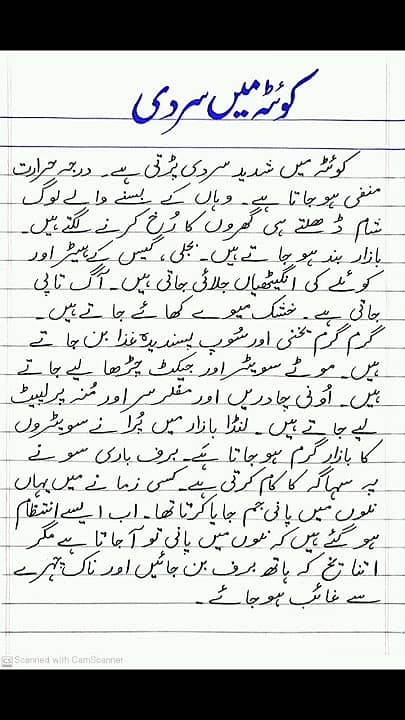 کوئٹہ میں سردی
کوئٹہ میں شدید سردی پڑتی ہے۔ درجہ حرارت
منفی ہو جاتا ہے۔ وہاں کے بسنے والے لوگ
شام ڈھلتے ہی گھروں کا رُخ کرنے لگتے ہیں۔
بازار بند ہو جاتے ہیں۔ بجلی، گیس کے ہیٹر اور
کوئلے کی انگیٹھیاں جلائی جاتی ہیں۔ آگ تاپی
جاتی ہے۔ خشک میوے کھائے جاتے ہیں۔
گرم گرم یخنی اور سُوپ پسندیدہ غذا بن جاتے
ہیں۔ موٹے سویٹر اور جیکٹ چڑھا لیے جاتے
ہیں۔ اُونی چادریں اور مفلر سر اور مُنہ پر لپیٹ
لیے جاتے ہیں۔ لنڈا بازار میں پُرانے سویٹروں
کا بازار گرم ہو جاتا ہے۔ برف باری سونے
پہ سہاگہ کا کام کرتی ہے۔ کسی زمانے میں یہاں
نلوں میں پانی جم جایا کرتا تھا۔ اب ایسے انتظام
ہو گئے ہیں کہ نلوں میں پانی تو آ جاتا ہے مگر
اتنا یخ کہ ہاتھ برف بن جائیں اور ناک چہرے
سے غائب ہو جائے۔
CS Scanned with CamScanner